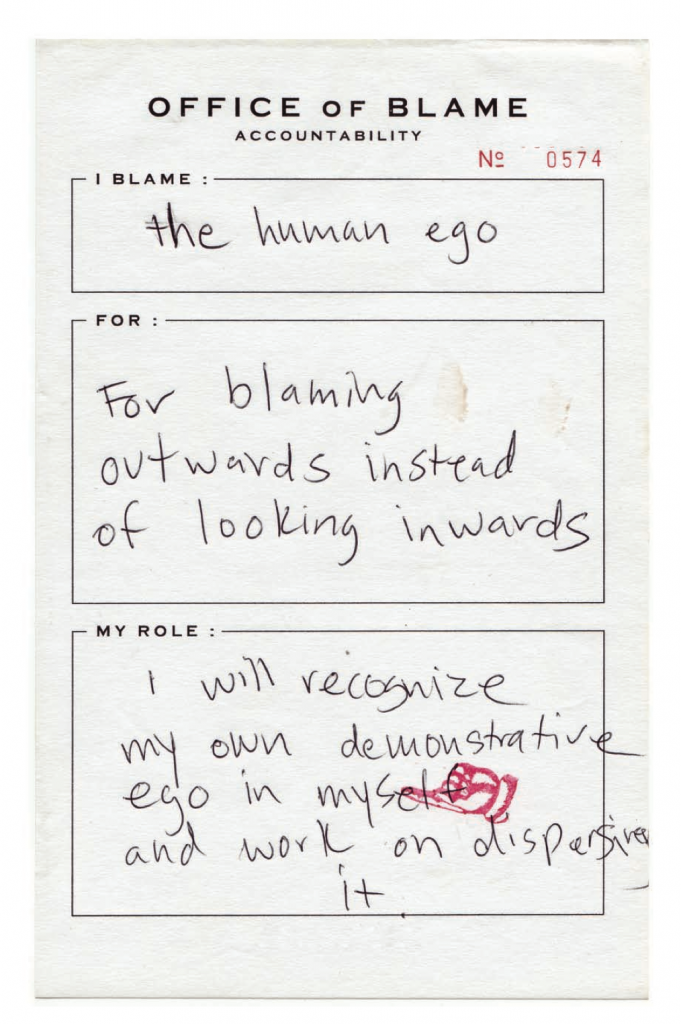 OFFICE OF BLAME
ACCOUNTABILITY
Nº 0574
I BLAME :
the human ego
FOR :
For blaming
outwards instead
of looking inwards
MY ROLE :
I will recognize
my own demonstrative
ego in myself
and work on dispersing
it